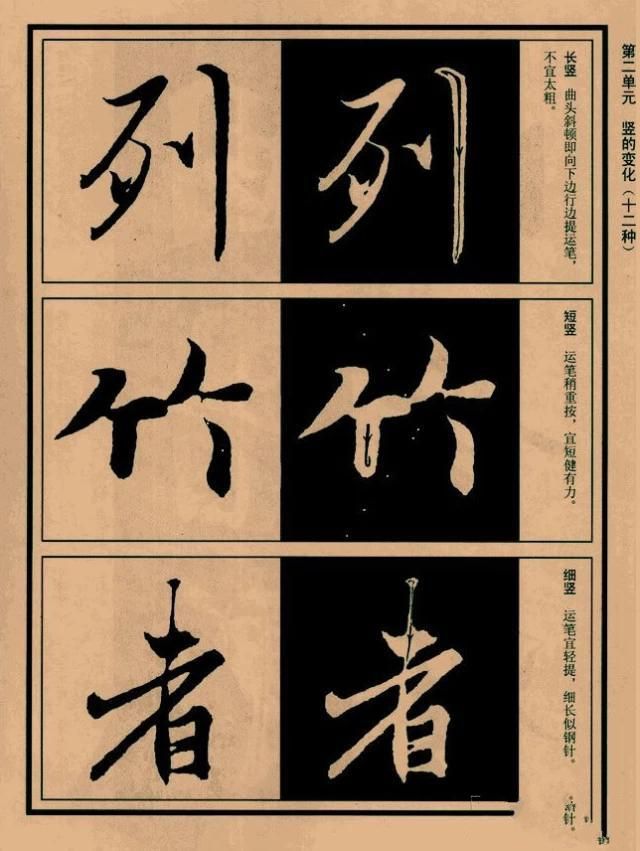 第二单元 竖的变化（十二种）
长竖 曲头斜顿即向下边行边提运笔，
不宜太粗。
列 列
短竖 运笔稍重按，宜短健有力。
竹 竹
细竖 运笔宜轻提，细长似钢针。
者 者
针。